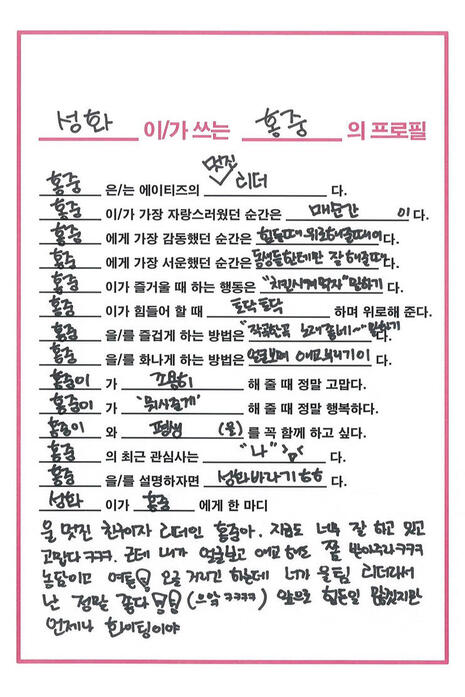 성화 이/가 쓰는 홍중 의 프로필
홍중 은/는 에이티즈의 멋진 리더 다.
홍중 이/가 가장 자랑스러웠던 순간은 매순간 이 다.
홍중 에게 가장 감동했던 순간은 힘들때 위로해줄때이 다.
홍중 에게 가장 서운했던 순간은 동생들한테만 잘해줄때 다.
홍중 이/가 즐거울 때 하는 행동은 "치킨시켜먹자" 말하기 다.
홍중 이/가 힘들어 할 때 토닥토닥 하며 위로해 준다.
홍중 을/를 즐겁게 하는 방법은 "작곡한곡 노래좋네~" 말하기 다.
홍중 을/를 화나게 하는 방법은 얼굴보며 애교부리기이 다.
홍중이 가 조용히 해 줄 때 정말 고맙다.
홍중이 가 '뭐사줄게' 해 줄 때 정말 행복하다.
홍중이 와 평생 (을) 를 꼭 함께 하고 싶다.
홍중 의 최근 관심사는 "나" 다.
홍중 을/를 설명하자면 성화바라기ㅎㅎ 다.
성화 이가 홍중 에게 한 마디
울 멋진 친구이자 리더인 홍중아. 지금도 너무 잘 하고 있고
고맙다ㅋㅋㅋ. 근데 내가 얼굴보고 애교해도 좀 받아주라ㅋㅋㅋ
농담이고 여튼 오글거리긴 하는데 너가 울팀 리더라서
난 정말 좋다 (으악ㅋㅋㅋㅋ) 앞으로 힘든일 많겠지만
언제나 화이팅이야